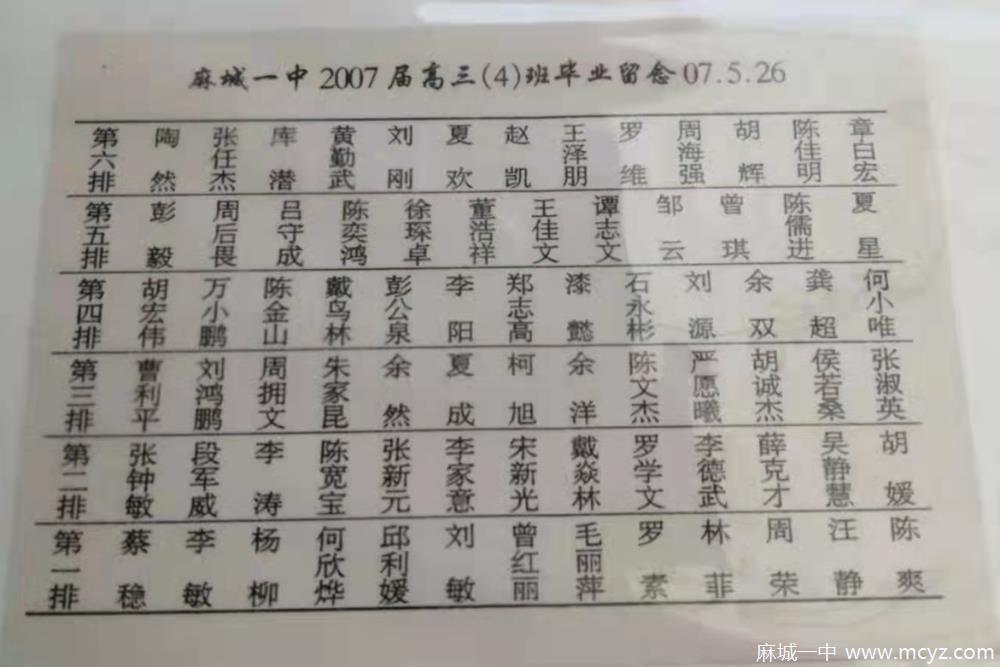 麻城一中2007届高三(4)班毕业留念07.5.26
第六排 陶然 张任杰 库潜 黄勤武 刘刚 夏欢 赵凯 王泽朋 罗维 周海强 胡辉 陈佳明 章白宏
第五排 彭毅 周后畏 吕守成 陈奕鸿 徐琛卓 董浩祥 王佳文 谭志文 邹云 曾琪 陈儒进 夏星
第四排 胡宏伟 万小鹏 陈金山 戴鸟林 彭公泉 李阳 郑志高 漆懿 石永彬 刘源 余双 龚超 何小唯
第三排 曹利平 刘鸿鹏 周拥文 朱家昆 余然 夏成 柯旭 余洋 陈文杰 严愿曦 胡诚杰 侯若桑 张淑英
第二排 张钟敏 段军威 李涛 陈宽宝 张新元 李家意 宋新光 戴焱林 罗学文 李德武 薛克才 吴静慧 胡媛
第一排 蔡稳 李敏 杨柳 何欣烨 邱利媛 刘敏 曾红丽 毛丽萍 罗素 林菲 周荣 汪静 陈爽
麻城一中 www.mcyz.com